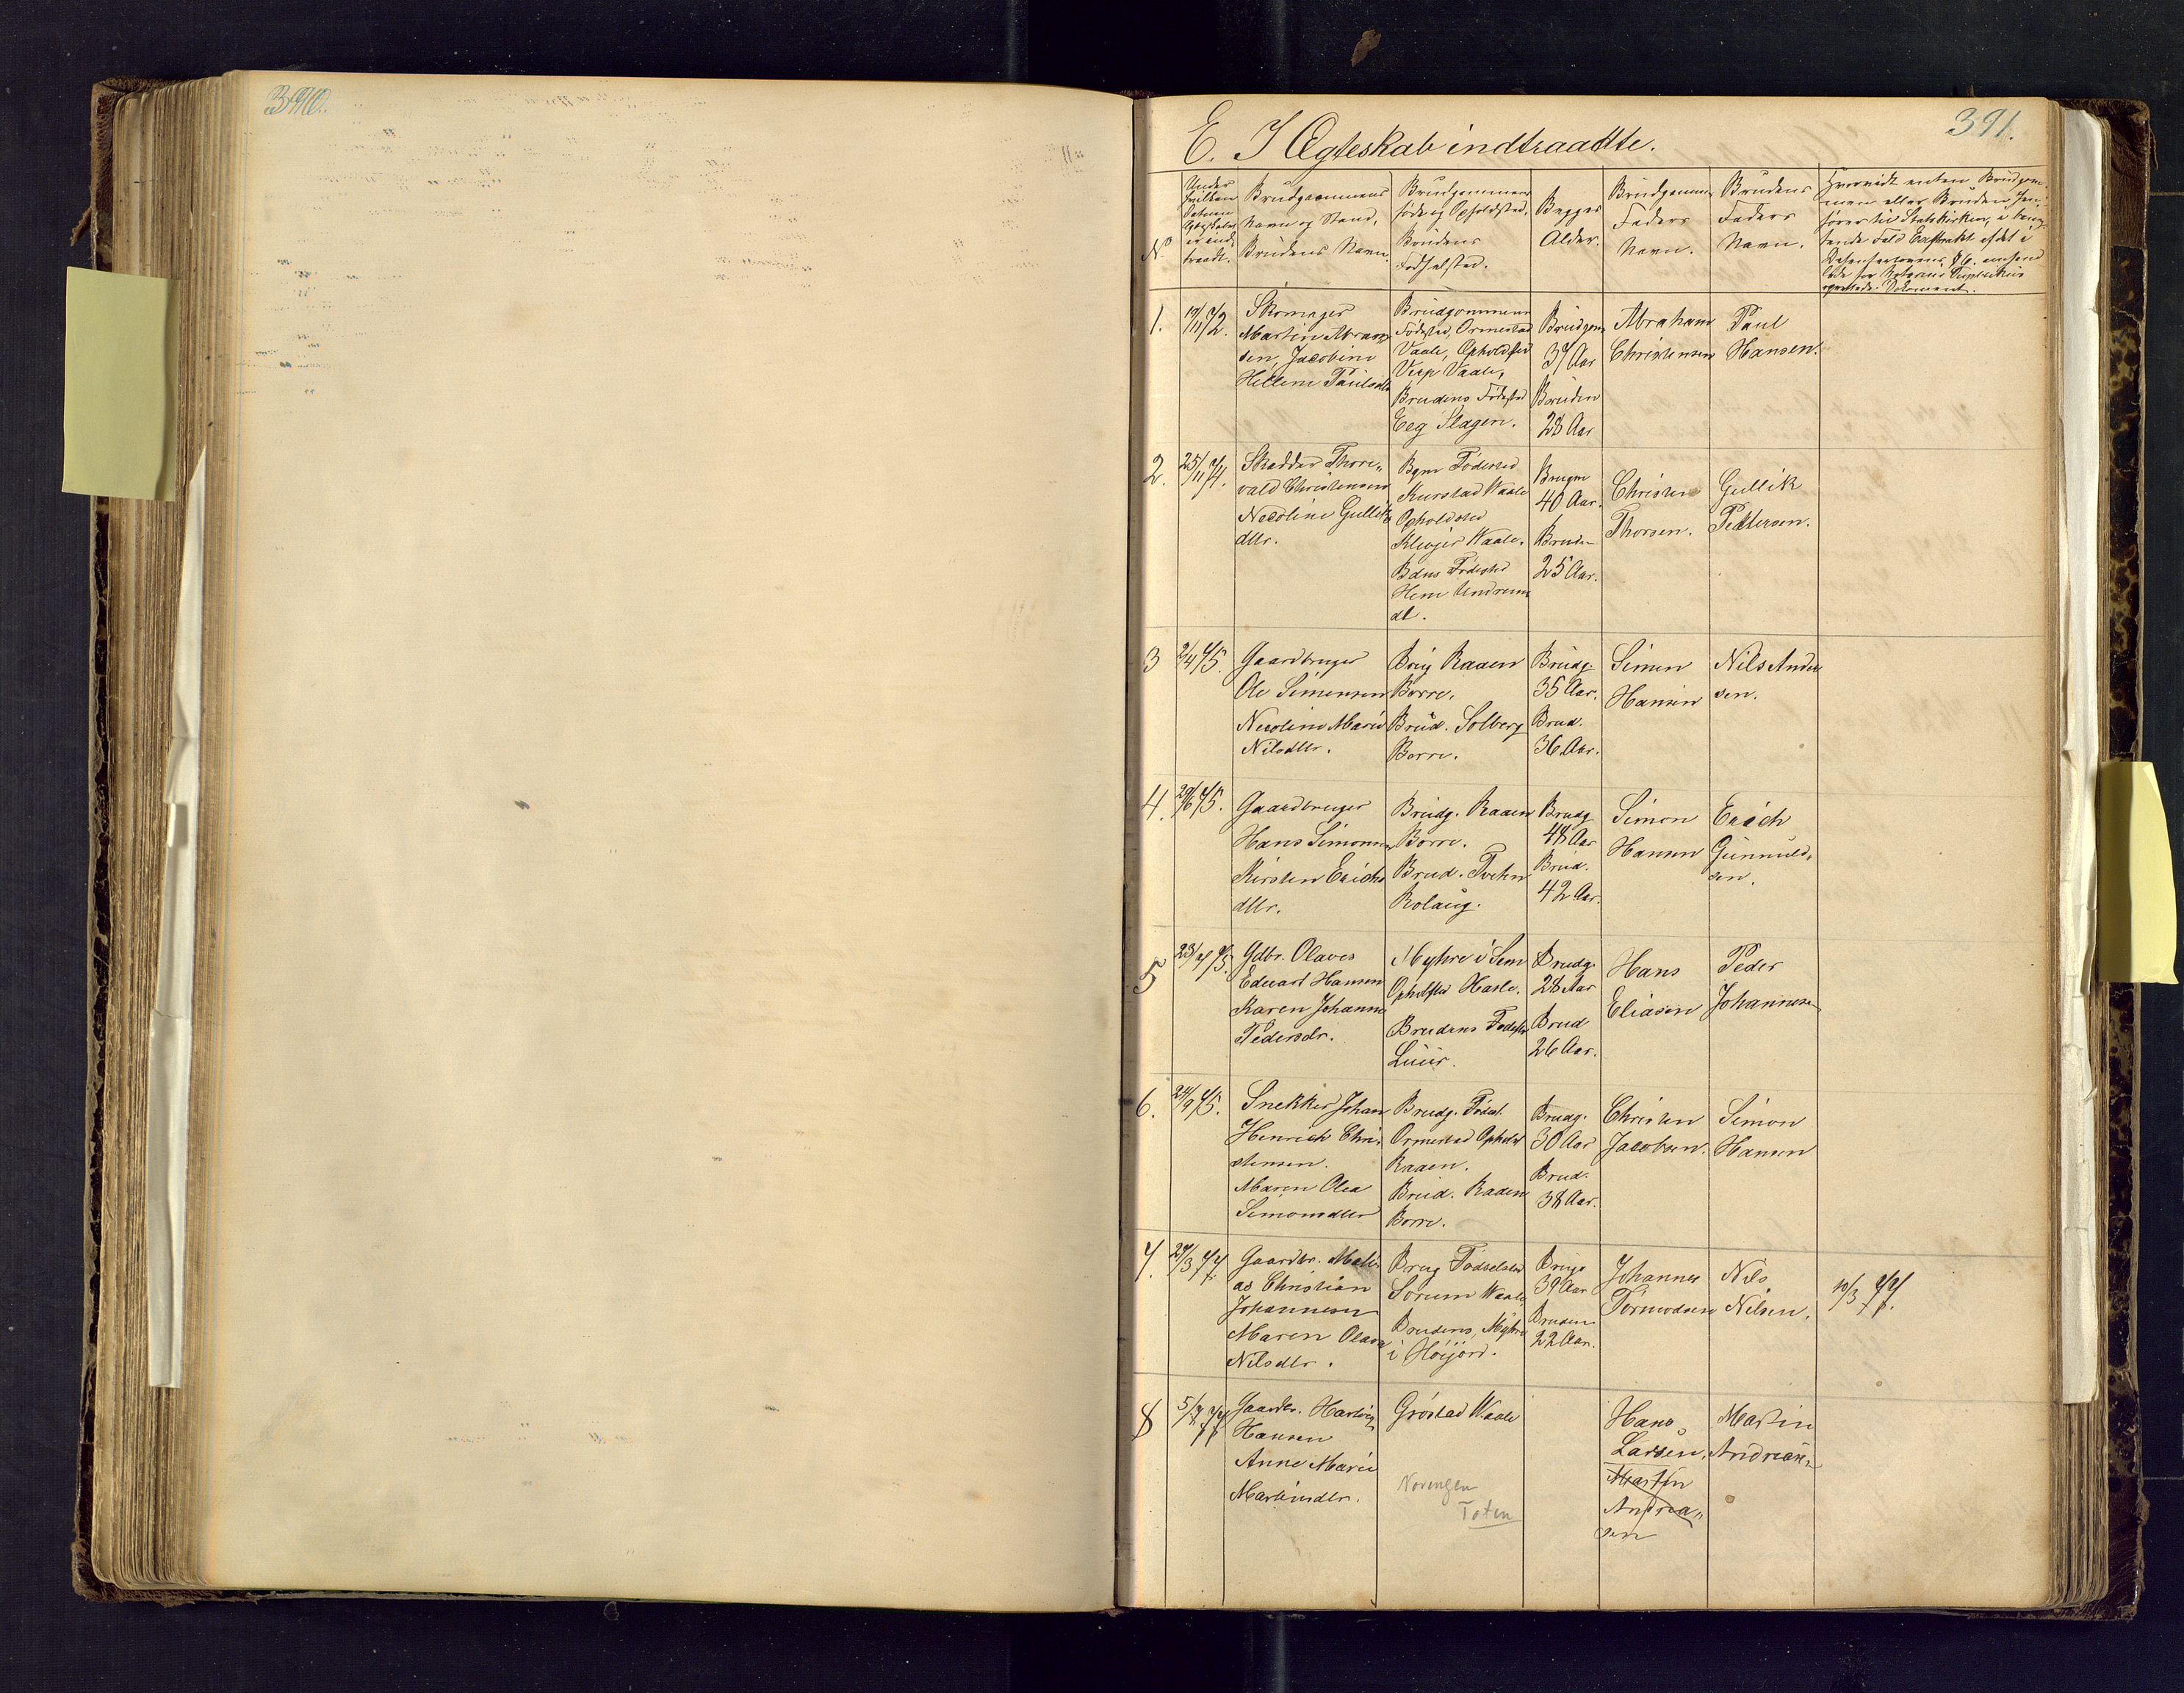 390.
391.
E. I Ægteskab indtraadte.
No
Under
hvilken
Datum
Ægteskabet
er ind-
traadt.
Brudgommens
Navn og Stand,
Brudens Navn.
Brudgommens
føde og Opholdsted,
Brudens
Fødselsted.
Begges
Alder.
Brudgommens
Faders
Navn.
Brudens
Faders
Navn.
Hvorvidt enten Brudgom-
men eller Bruden hen-
hører til Statskirken, i
Fald
Dokument.
1.
72.
Skomager
Martin Abram-
sen, Jacobine
Hellene Paulsdtr
Brudgommens
Fødested, Ormestad
Vaale, Opholdsted
Vaale,
Brudens Fødested
Eeg Slagen.
Brudgom
37 Aar
Bruden
28 Aar
Abraham
Christensen
Paul
Hansen.
2.
25/11 74.
Skrædder Thor-
vald Christensen
Nicoline Gulliks
dtr.
Bgm Fødested
Kurstad Vaale
Opholdsted
Vaale.
Bdns Fødested
Hem
dl.
Brugm
40 Aar.
Bruden
25 Aar.
Christen
Thorsen.
Gullik
Pettersen.
3
2/4 75.
Gaardbruger
Ole Simensen
Nicoline Marie
Nilsdtr.
Brug Raaen
Borre.
Brud. Solberg
Borre.
Brudg.
35 Aar.
Brud.
36 Aar.
Simen
Hansen
Nils Ander
sen.
4.
29/6 75.
Gaardbruger
Hans Simonsen
Kirsten Erichs
dtr.
Brudg. Raaen
Borre.
Brud. Tveten
Rolaug.
Brudg
48 Aar
Brud.
42 Aar.
Simon
Hansen
Erich
Gunnuld-
sen.
5
23/7 75.
Gdbr. Olaves
Eduart Hansen
Karen Johanne
Pedersdr.
Myhre i Sem
Opholdsted Hasle.
Brudens Fødested
Brudg.
28 Aar
Brud
26 Aar.
Hans
Eliasen
Peder
Johannesen
6.
24/9 75.
Snekker Johan
Henrich Chri-
stensen.
Maren Olea
Simonsdtr
Brudg. Fødest.
Ormestad Opholdst
Raaen.
Brud. Raaen
Borre.
Brudg.
30 Aar
Brud.
38 Aar.
Christen
Jacobsen.
Simon
Hansen
7.
27/3 77
Gaardbr. Mathi-
as Christian
Johannesen
Maren Olava
Nilsdtr.
Brug Fødselsted
Sørum Vaale,
Brudens, Myhre
i Høijord.
Brugs
39 Aar
Bruden
22 Aar.
Johannes
Tormodsen
Nils
Nilsen.
10/3 77.
8
5/7 77
Gaardbr. Hartvig
Hansen
Anne Marie
Martinsdtr.
Grøstad Vaale
Norengen
Toten
Hans
Larsen.
Martin
Andrea-
sen
Martin
Andreasen